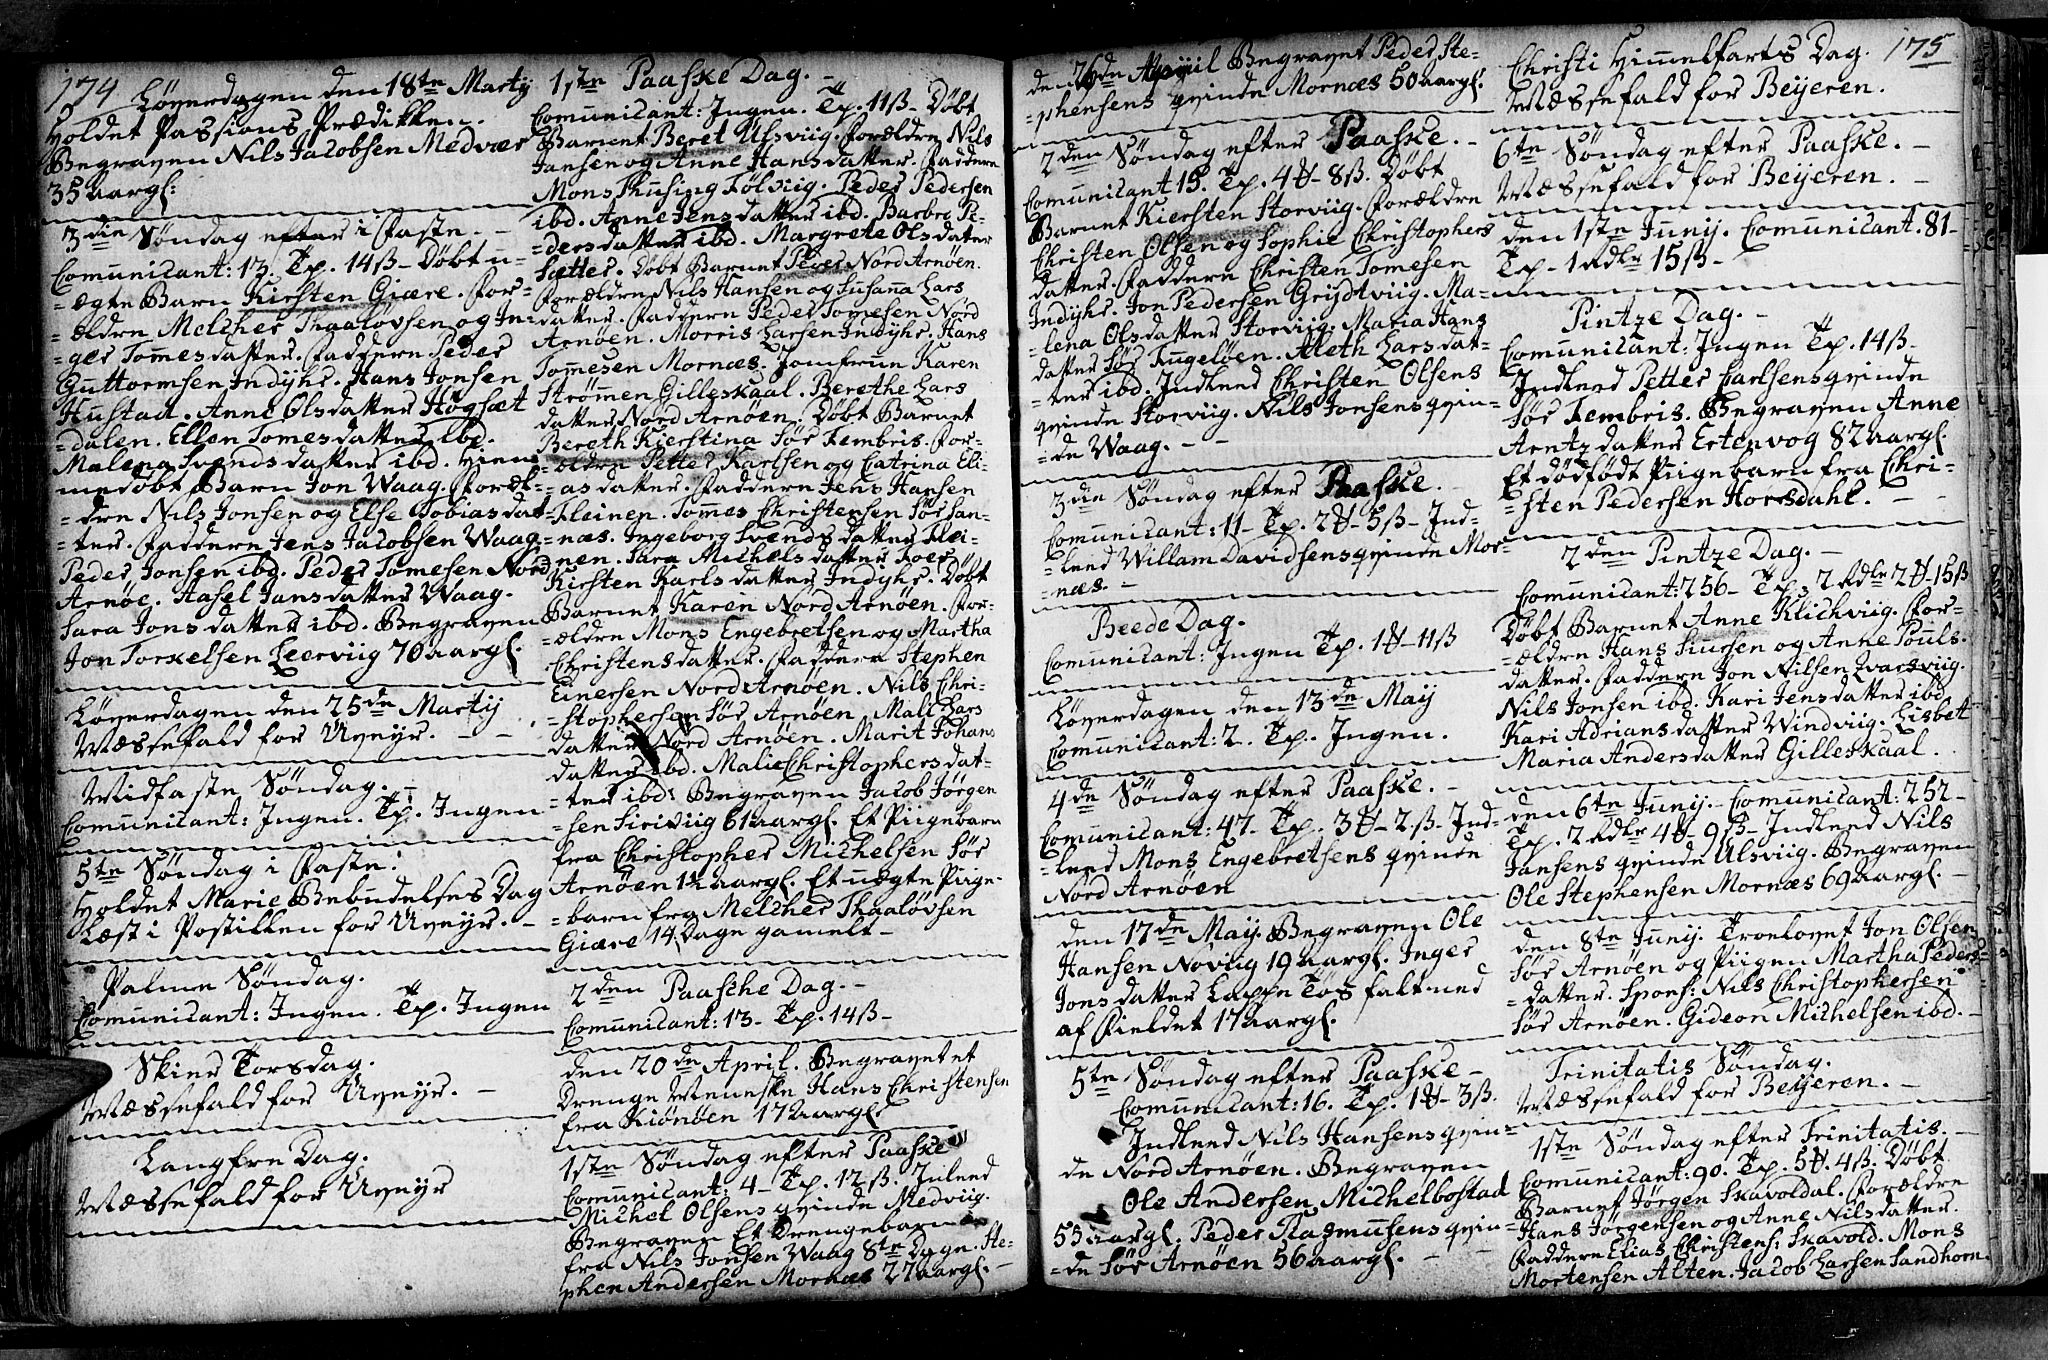 174
Løverdagen den 18de Martij
Holdet Passions Prædikken.
Begraven Nils Jacobsen Medvær
35 aargl:
3die Søndag efter i Faste.
Comunicant: 13. Tp. 14ß. Døbt u-
=ægte Barn Kirsten Giære. For-
=ældre Melcher Thaaløvsen og In-
=ger Tomesdatter. Faddere Peder
Guttormsen Indÿhr. Hans Jonsen
Hustad. Anne Olsdatter Høgsæt
=dalen. Ellen Tomesdatter ibd.
Malena Svendsdatter ibd. Hiem
medøbt Barn Jon Waag. Foræl-
=dre Nils Jonsen og Else Tobiasdat
=ter. Faddere Jens Jacobsen Waag
Peder Jonsen ibd. Peder Tomesen Nord
Arnøe. Hasel Jansdatter Waag.
Sara Jonsdatter ibd. Begraven
Jon Torkelsen Leerviig 70 aargl.
Løverdagen den 25de Martij
Messefald for Uveyr.
Midfaste Søndag.
Comunicant: Ingen. Tp. Ingen
5te Søndag i Faste.
Holdet Marie Bebudelses Dag
Læst i Postillen for Uveyr.
Palme Søndag.
Comunicant: Ingen. Tp. Ingen
Skier Torsdag.
Messefald for Uveyr.
Langfre Dag.
Messefald for Uveyr
1ste Paaske Dag.
Comunicant: Ingen. Tp. 11ß. Døbt
Barnet Beret Ulsviig. Forældre Nils
Jansen og Anne Hansdatter. Faddere
Mons Thusing Følviig. Peder Pedersen
ibd. Anne Jensdatter ibd. Barbro Pe-
=dersdatter ibd. Margrete Olsdatter
Sætter. Døbt Barnet Peder Nord Arnøen.
Forældre Nils Hansen og Susana Lars
datter. Faddere Peder Tomesen Nord
Arnøen. Morris Larsen Indÿhr. Hans
Tomesen Mornæs. Jomfruen Karen
Strømen Gilleskaal. Berethe Lars
datter Nord Arnøen. Døbt Barnet
Bereth Kierstina Sør Fembris. For-
=ældre Petter Karlsen og Catrina Eli-
=as datter. Faddere Jens Hansen
Fleinen. Tomes Christensen Sør San-
=næs. Ingeborg Svends datter Flei-
=nen. Sara Michelsdatter Foer
Kirsten Karlsdatter Indÿhr. Døbt
Barnet Karen Nord Arnøen. For-
=ældre Mons Engebretsen og Martha
Christensdatter. Faddere Stephen
Einersen Nord Arnøen. Nils Chri-
=stophersen Sør Arnøen. Mali Lars
datter Nord Arnøen. Marit Johans
datter ibd. Malie Christophersdat-
=ter ibd. Begraven Jacob Jørgen
=sen Siriviig 61 aargl. Et Piigebarn
fra Christopher Michelsen Sør
Arnøen 1½ aargl. Et uægte Piige-
=barn fra Melcher Thaaløvsen
Giære 14 Dage gamelt
2den Paasche Dag.
Comunicant: 13. Tp. 14ß
den 20de April. Begravet et
Drenge Menneske Hans Christensen
fra Kiønøen 17 aargl
1ste Søndag efter Paaske
Comunicant: 4. Tp. 12ß. Inleed
Michel Olsens qvinde Medviig.
Begraven Et Drengebarn
fra Nils Jonsen Waag 8te Dage. Ste-
phen Andersen Mornæs 27 aargl.
den 26de April Begravet Peder Ste-
=phensens qvinde Mornæs 50 aargl.
2den Søndag efter Paaske.
Comunicant 15. Tp. 4 ₰ 8ß. Døbt
Barnet Kiersten Storviig. Forældre
Christen Olsen og Sophie Christophers
datter. Faddere Christen Tomesen
Indÿhr. Jon Pedersen Grijdtviig. Ma-
=lena Olsdatter Storviig. Maria Hans
datter Sør Fugeløen. Aleth Larsdat-
=ter ibd. Indleed Christen Olsens
qvinde Storviig. Nils Jonsens qvin-
=de Waag.
3die Søndag efter Paaske.
Comunicant: 11. Tp. 2 ₰ 5ß. Ind-
=leed Willam Davidsens qvinde Mor-
=næs.
Beede Dag.
Comunicant: Ingen Tp. 1 ₰ 11ß
Løverdagen den 13de Maÿ
Comunicant: 2. Tp. Ingen.
4de Søndag efter Paaske.
Comunicant: 47. Tp. 3 ₰ 2ß. Ind-
=leed Mons Engebretsens qvinde
Nord Arnøen
den 17de Maÿ Begraven Ole
Hansen Noviig 19 aargl. Inger
Jonsdatter Lappe Tøs falt ned
af Fieldet 17 aargl.
5te Søndag efter Paaske
Comunicant: 16. Tp. 1 ₰ 3ß.
Indleed Nils Hansens qvin-
de Nord Arnøen. Begraven
Ole Andersen Michelbostad
55 aargl. Peder Rasmusens qvin
=de Sør Arnøen 56 aargl.
175
Christi Himmelfarts Dag.
Messefald for Beÿeren.
6te Søndag efter Paaske.
Messefald for Beÿeren.
den 1ste Junij. Comunicant. 81
Tp. 1 Rdlr 15ß
Pintze Dag.
Comunicant: Ingen Tp. 14ß
Indleed Petter Carlsens qvinde
Sør Fembris. Begraven Anne
Arntzdatter Ertenvog 82 aargl.
Et dødfødt Piigebarn fra Chri-
=sten Pedersen Horrsdahl.
2den Pintze Dag.
Comunicant: 256. Tp. 2 Rdlr 2 ₰ 15ß
Døbt Barnet Anne Klichviig. For-
=ældre Hans Siursen og Anne Pouls-
datter. Faddere Jon Nilsen Kvarsviig.
Nils Jonsen ibd. Kari Jensdatter ibd.
Kari Adriansdatter Windviig. Lisbet
Maria Andersdatter Gilleskaal.
den 6te Junij. Comunicant: 252
Tp. 2 Rdlr 4 ₰ 9ß. Indleed Nils
Jansens qvinde Ulsviig. Begraven
Ole Stephensen Mornæs 69 aargl.
den 8te Junij. Troelovet Jon Olsen
Sør Arnøen og Piigen Martha Peders-
=datter. Spons: Nils Christophersen
Sør Arnøen. Gideon Michelsen ibd.
Trinitatis Søndag.
Messefald for Beÿeren.
1ste Søndag efter Trinitatis.
Comunicant: 90. Tp. 5 ₰. 4ß. Døbt
Barnet Jørgen Skavoldal. Forældre
Hans Jørgensen og Anne Nilsdatter.
Faddere Elias Christens: Skavold. Mons
Mortensen Alten. Jacob Larsen Sandhorn.